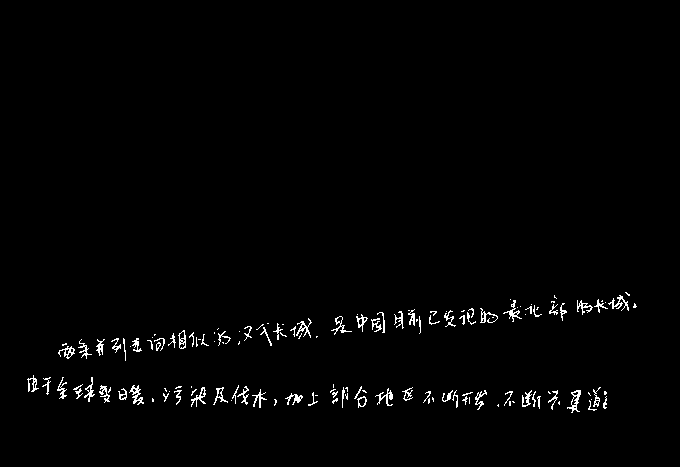 两条并列走向相似的汉代长城，是中国目前已发现的最北部的长城。
由于全球变暖，污染及伐木，加上部分地区不断开发，不断兴建道